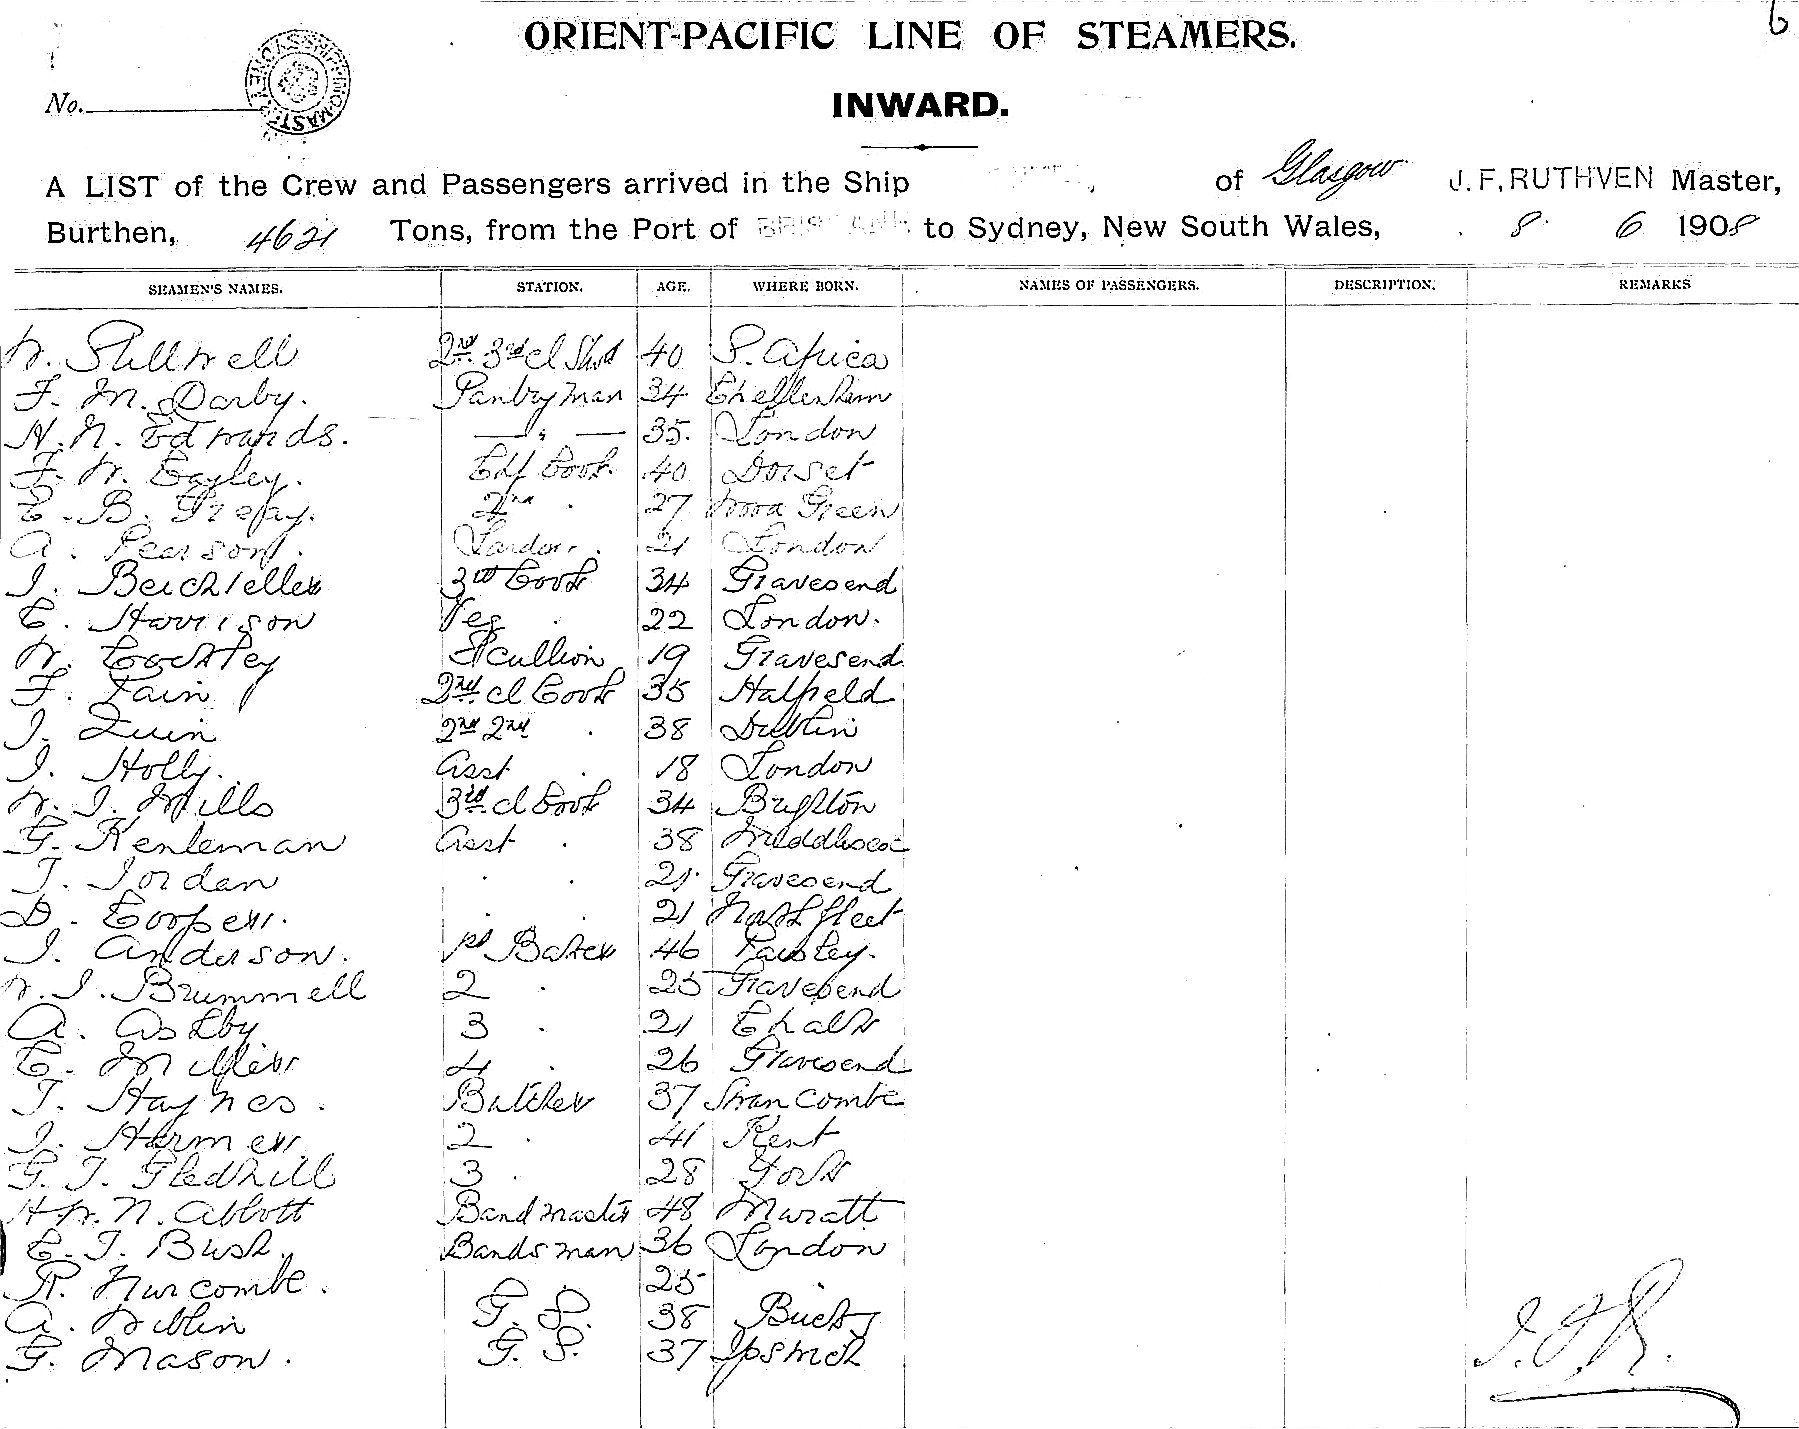 6
ORIENT-PACIFIC LINE OF STEAMERS.
No.
INWARD.
A LIST of the Crew and Passengers arrived in the Ship , of Glasgow J. F. RUTHVEN Master,
Burthen, 4621 Tons, from the Port of BRISBANE to Sydney, New South Wales, 8 6 1908
SEAMEN'S NAMES. STATION. AGE. WHERE BORN. NAMES OF PASSENGERS. DESCRIPTION. REMARKS
W. Stillwell 2nd 3rd cl Stwd 40 S. Africa
F. M. Darby. Pantryman 34 Cheltenham
H. N. Edwards. — " — 35. London
F. W. Bayley. Chf Cook. 40 Dorset
E. B. 2nd . 27 Green
A. Pearson. Larder . 21 London
J. 3rd Cook 34 Gravesend
E. Harrison Veg . 22 London.
W. Cockley Scullion 19 Gravesend
F. Fain 2nd cl Cook 35 Hatfield
J. Quin 2nd 2nd . 38 Dublin
J. Holly. Asst . 18 London
W. J. Mills 3rd cl Cook 34 Brighton
G. Kenleman Asst . 38 Middlesex
J. Jordan . . 21. Gravesend
D. Cooper. . . 21 Northfleet
J. Anderson. 1st Baker 46 Paisley.
W. J. Brummell 2 . 25 Gravesend
A. Ashby 3 . 21 Chalk
E. Miller 4 . 26 Gravesend
T. Haynes. Butcher 37 Swanscombe
J. Harmer 2 . 41 Kent
G. T. Gledhill 3 . 28 York
H. W. N. Abbott Bandmaster 48 Muratt
E. J. Bush. Bandsman 36 London
R. Nurcombe. 25
A. Niblin G. S. 38 Bucks
G. Mason. G. S. 37 Ipswich
J. F. R.